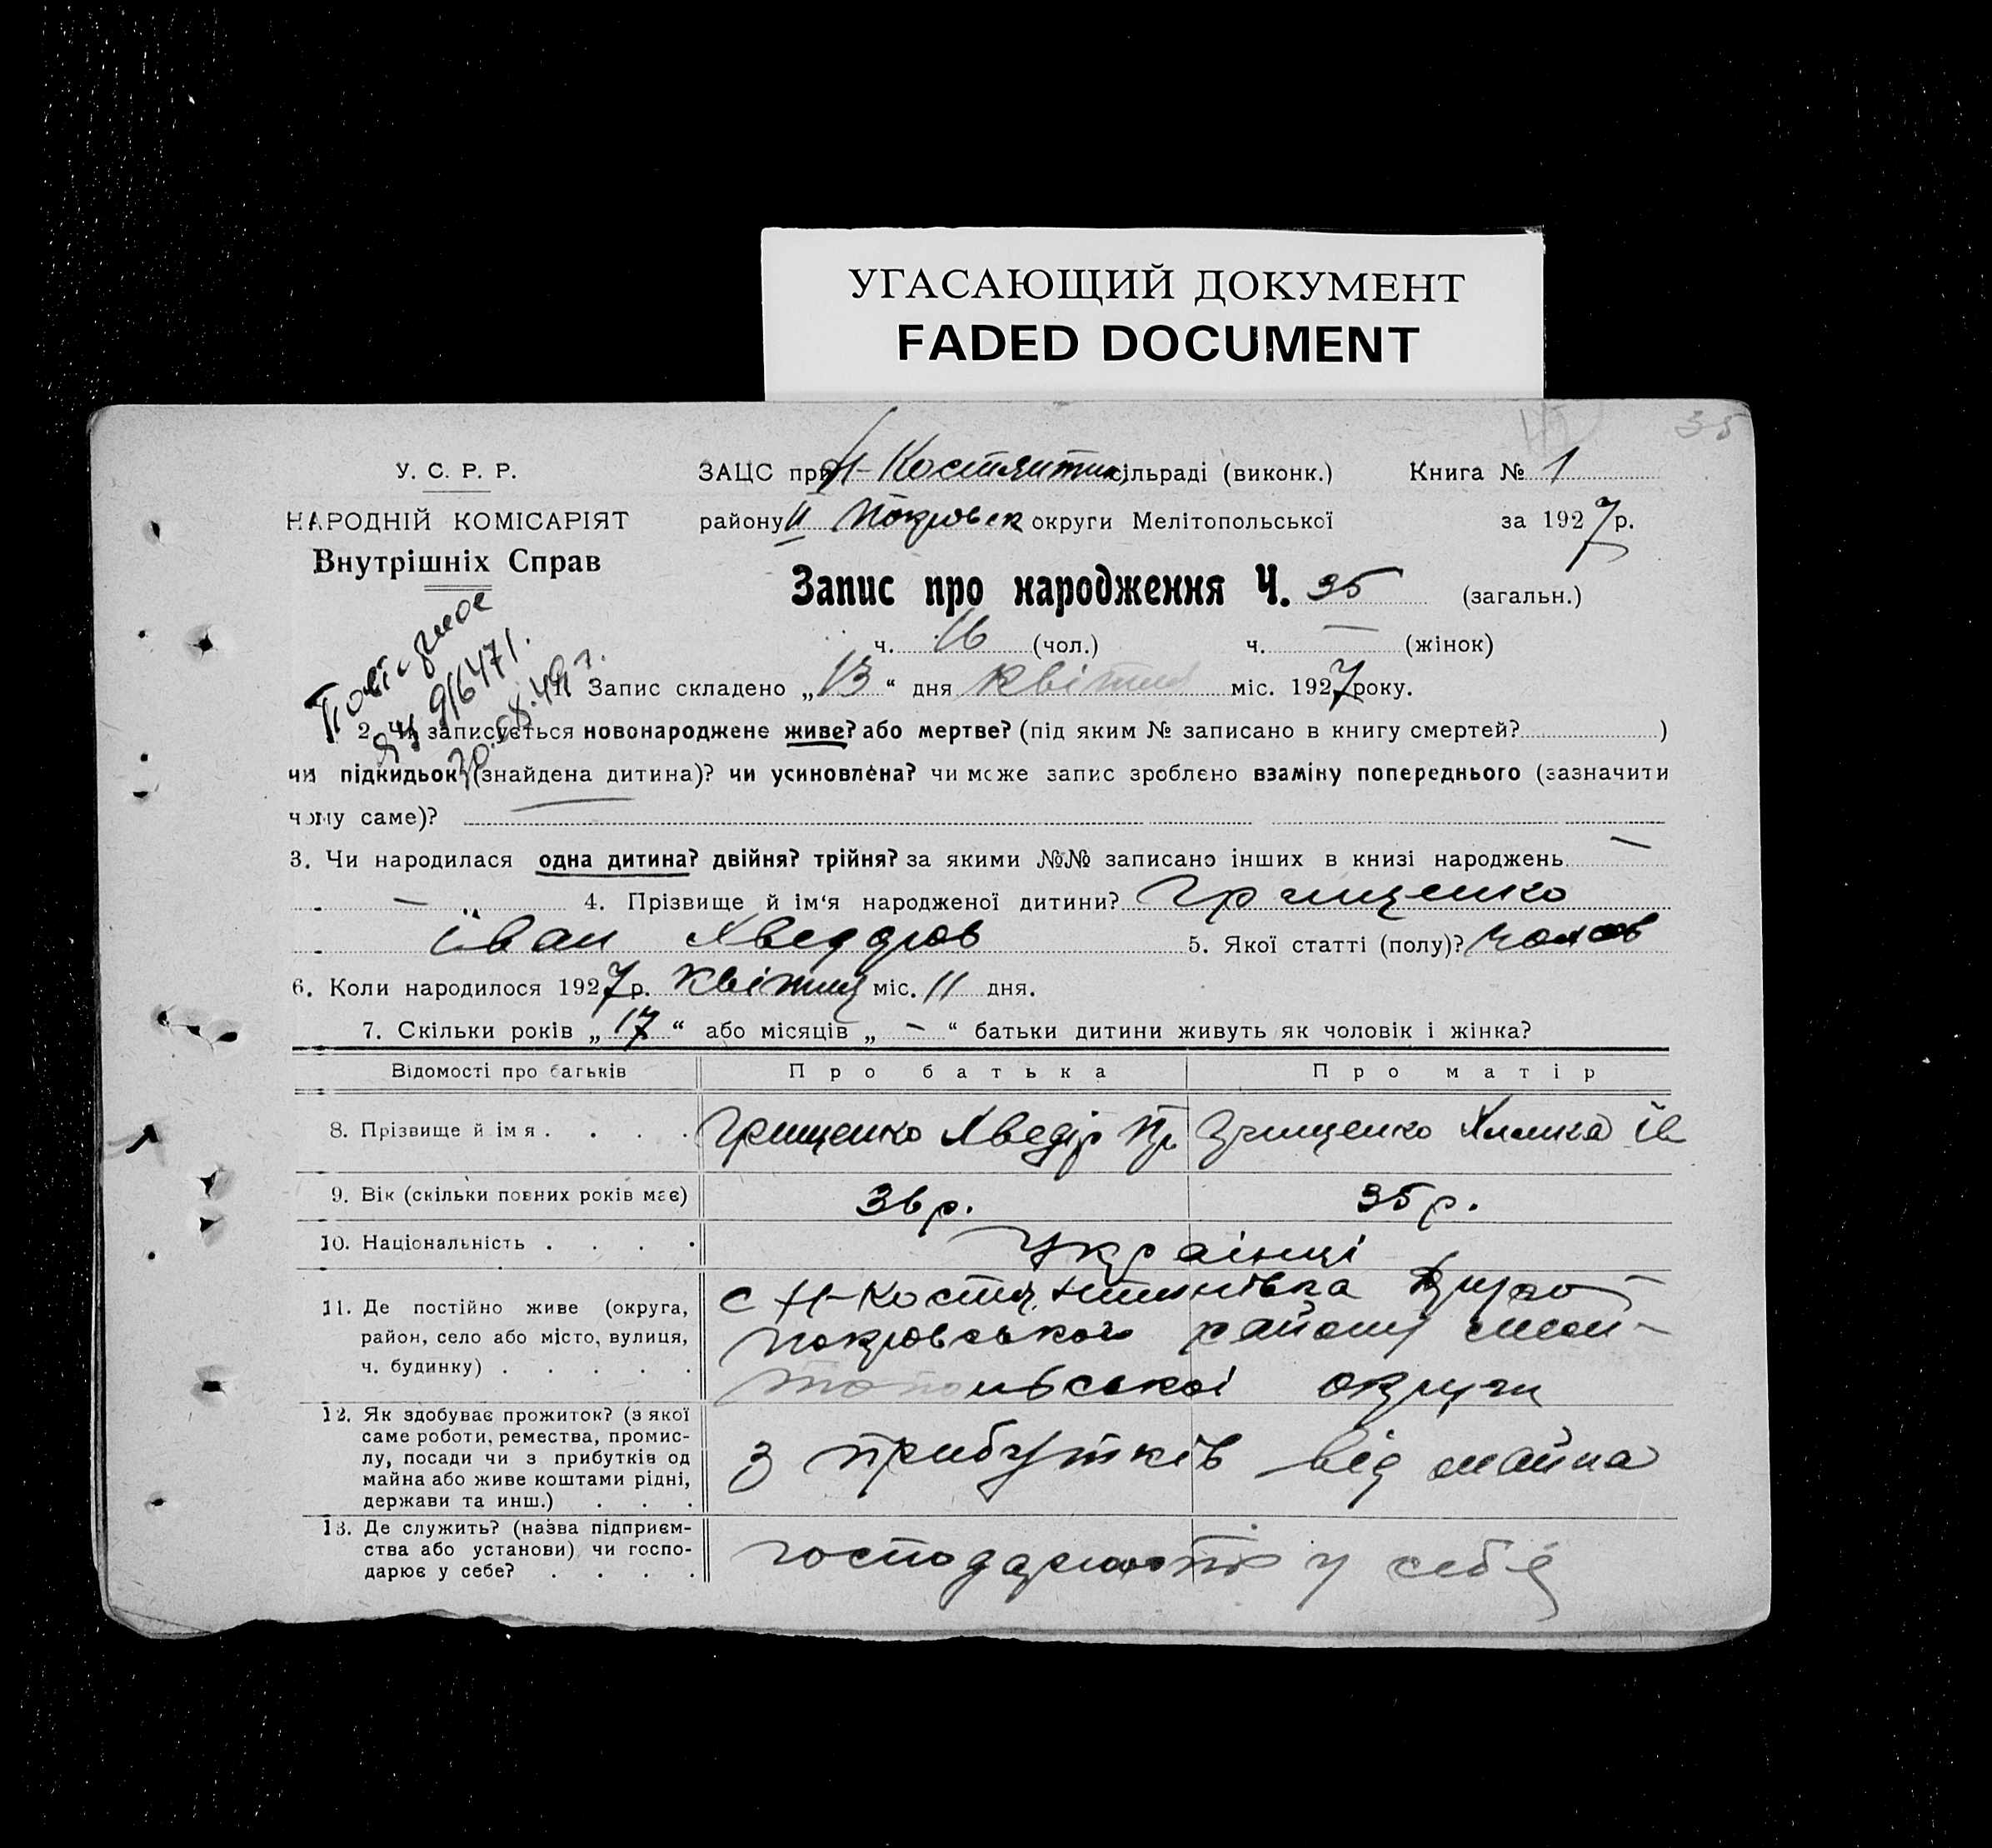 УГАСАЮЩИЙ ДОКУМЕНТ
FADED DOCUMENT
35
У. С. Р. Р.
НАРОДНІЙ КОМІСАРІЯТ
Внутрішніх Справ
ЗАЦС при Н-Костянтин. сільраді (виконк.) Книга № 1
району ІІ Покровск округи Мелітопольської за 1927 р.
Запис про народження Ч. 35 (загальн.)
ч. 16 (чол.) ч. — (жінок)
916471.
1. Запис складено „13“ дня Квітня міс. 1927 року.
2. Чи записується новонароджене живе? або мертве? (під яким № записано в книгу смертей? )
чи підкидьок (знайдена дитина)? чи усиновлена? чи може запис зроблено взаміну попереднього (зазначити
чому саме)? —
3. Чи народилася одна дитина? двійня? трійня? за якими №№ записано інших в книзі народжень —
— 4. Прізвище й ім‘я народженої дитини? Грищенко
Іван Хведоров 5. Якої статті (полу)? чолов
6. Коли народилося 1927 р. Квітня міс. 11 дня.
7. Скільки років „17“ або місяців „—“ батьки дитини живуть як чоловік і жінка?
Відомості про батьків Про батька Про матір
8. Прізвище й імя . . . . Грищенко Хведір Пр Грищенко Ів
9. Вік (скільки повних років має) 36 р. 35 р.
10. Національність . . . . Українці
11. Де постійно живе (округа,
район, село або місто, вулиця,
ч. будинку) . . . . .
с Н-Костянтинівка Друго
Покровського району Мелі-
топольської округи
12. Як здобуває прожиток? (з якої
саме роботи, ремества, промис-
лу, посади чи з прибутків од
майна або живе коштами рідні,
держави та инш.) . . .
З прибутків від майна
13. Де служить? (назва підприєм-
ства або установи) чи госпо-
дарює у себе? . . . .
господарюють у себе